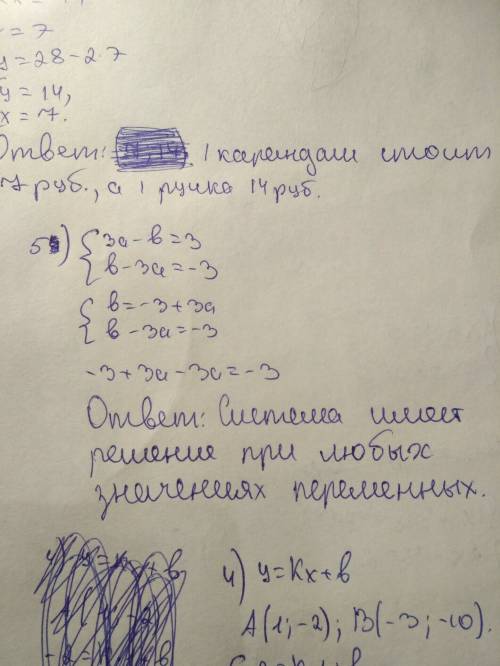 = 7
y = 28 - 2·7
y = 14,
x = 7.
Ответ: 1 карандаш стоит
7 руб., а 1 ручка 14 руб.
5) { 3a - b = 3
{ b - 3a = -3
{ b = -3 + 3a
{ b - 3a = -3
-3 + 3a - 3a = -3
Ответ: Система имеет
решение при любых
значениях переменных.
4) y = Kx + b
A(1; -2); B(-3; -10).